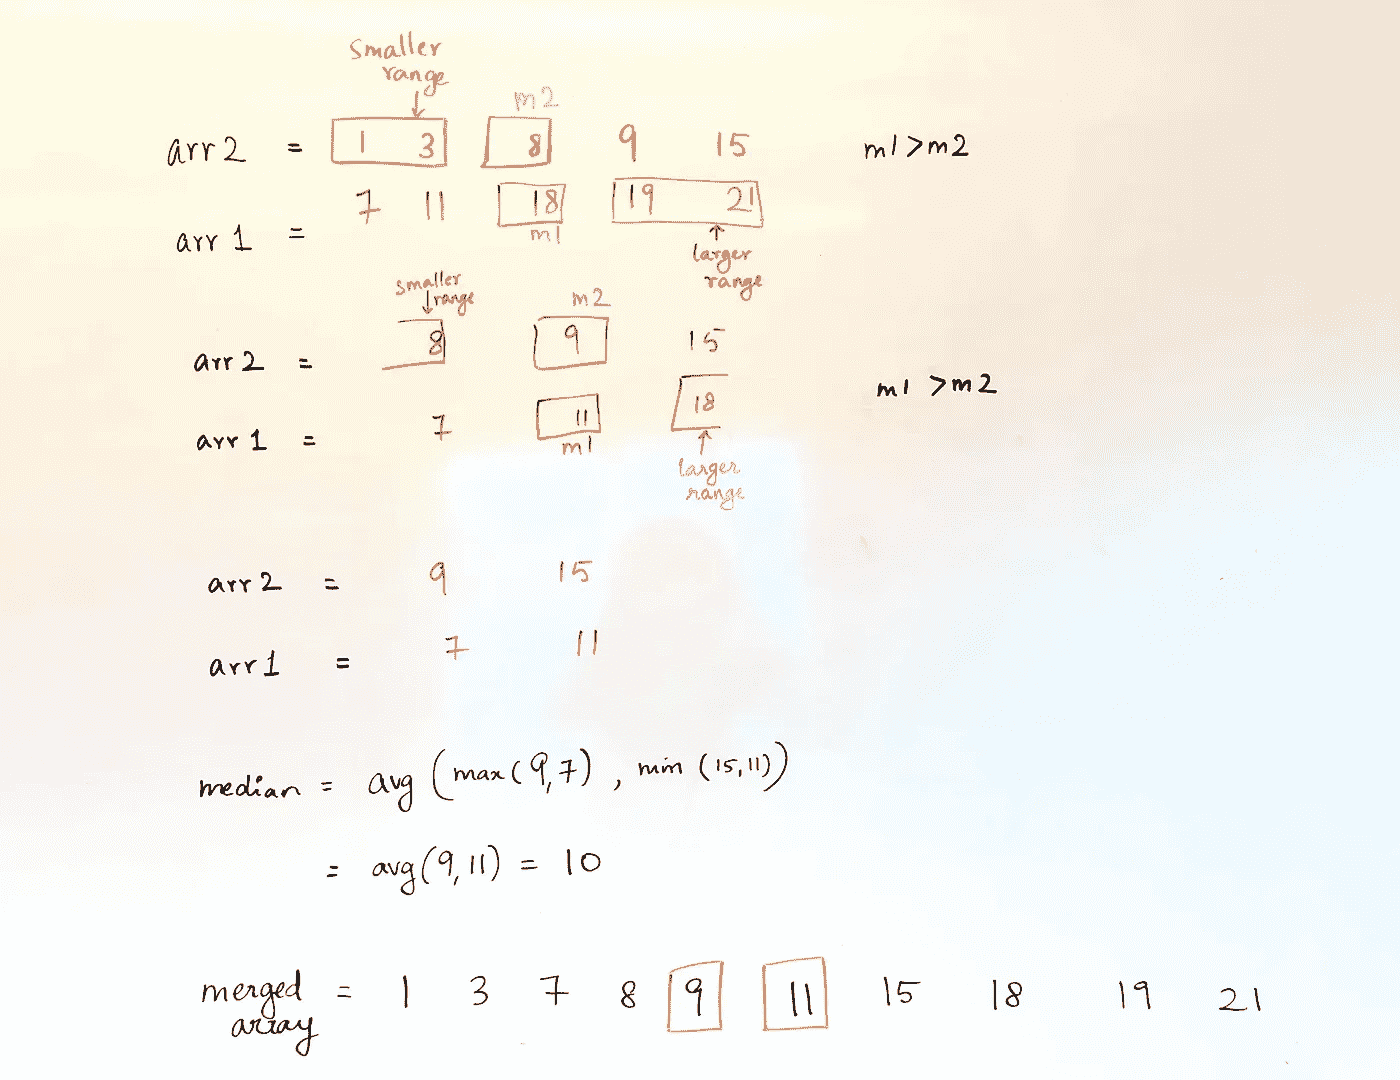 smaller
range
m2
arr 2 = 1 3 8 9 15 m1 > m2
7 11 18 19 21
arr 1 =
m1
larger
range
smaller
range
m2
arr 2 = 8 9 15
m1 > m2
arr 1 = 7 11 18
m1
larger
range
arr 2 = 9 15
arr 1 = 7 11
median = avg (max (9,7) , min (15,11))
= avg (9, 11) = 10
merged = 1 3 7 8 9 11 15 18 19 21
array